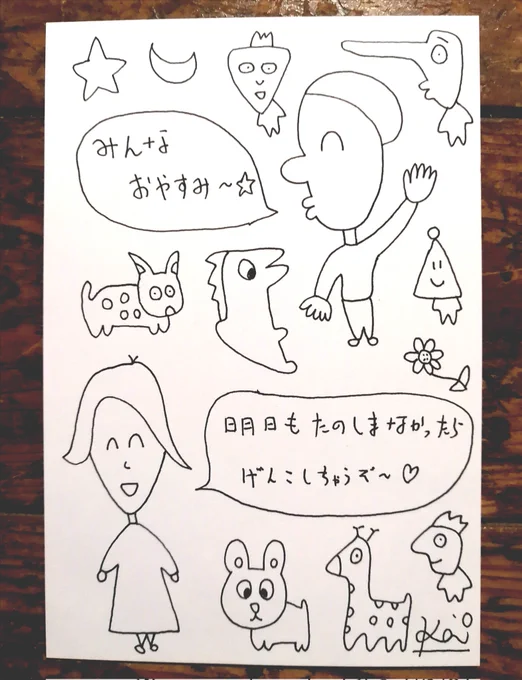 みんな
おやすみ～☆
明日も たのしまなかったら
げんこしちゃうぞ～♡
Kai